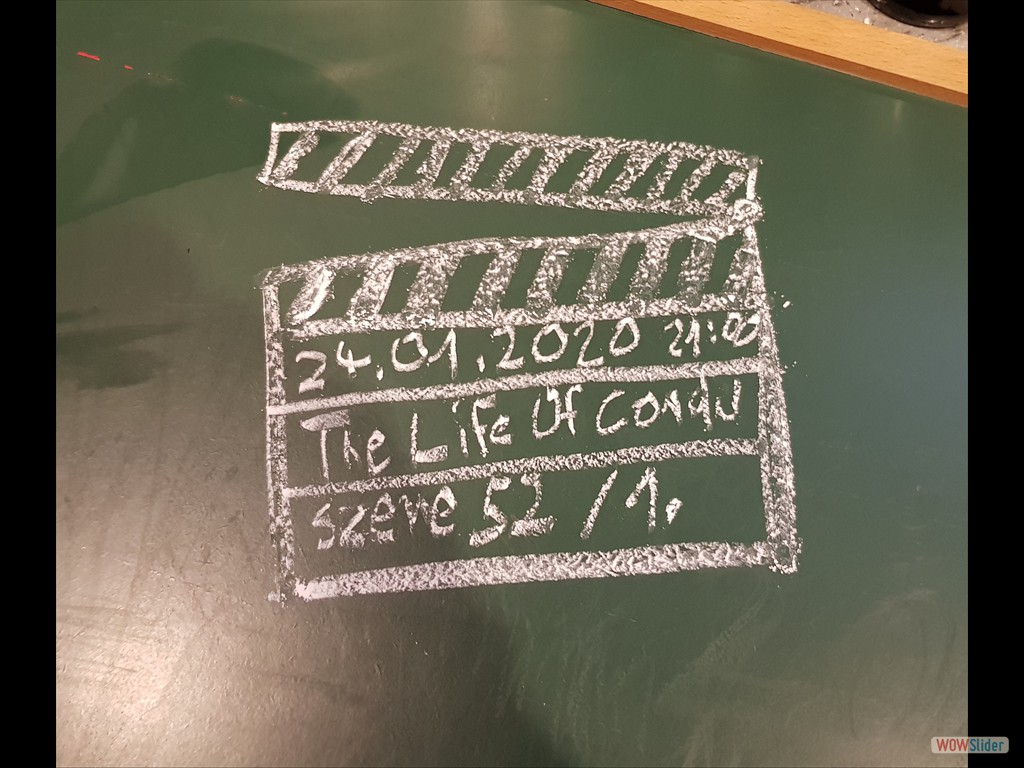 24.01.2020 21:00
The Life Of Condu
Szene 52 /1.
WOWSlider